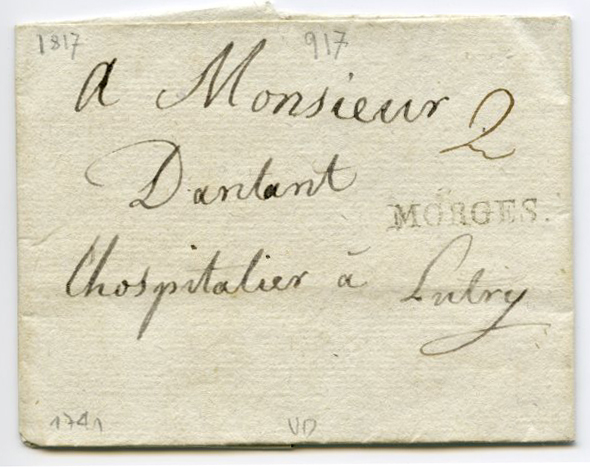 1817 917
A Monsieur
2
Dantant
MORGES.
Lhospitalier à Lutry
1741 VD